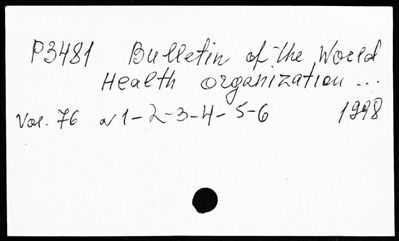 P3481 Bulletin of the World
Health Organization ...
Vol. 76 N 1-2-3-4-5-6 1998